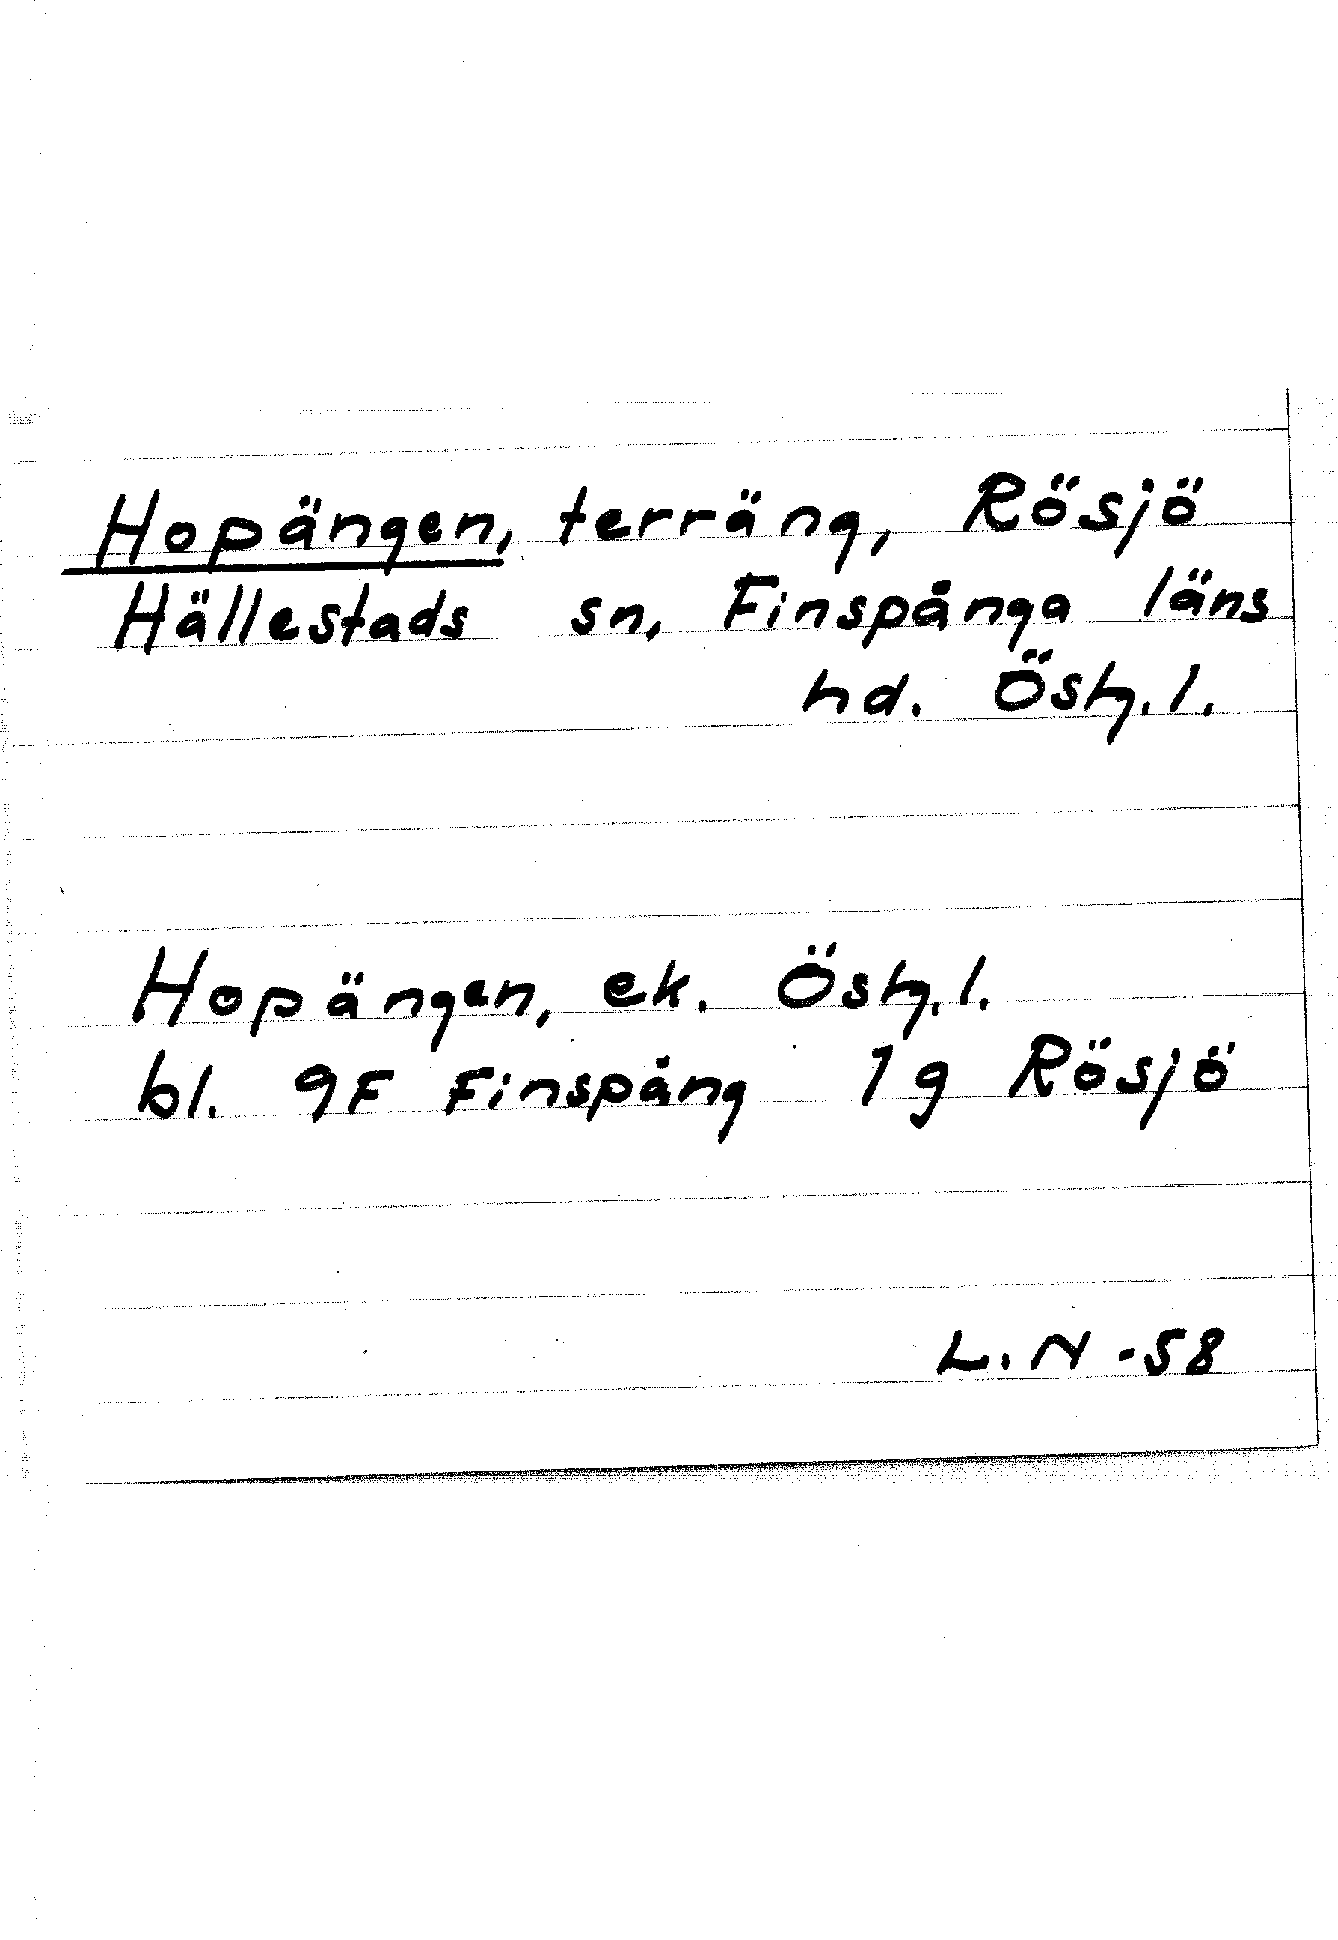 Hopängen, terräng, Rösjö
Hällestads sn, Finspånga läns
hd. Östg.l.
Hopängen, ek. Östg.l.
bl. 9F Finspång 1g Rösjö
L.N -58